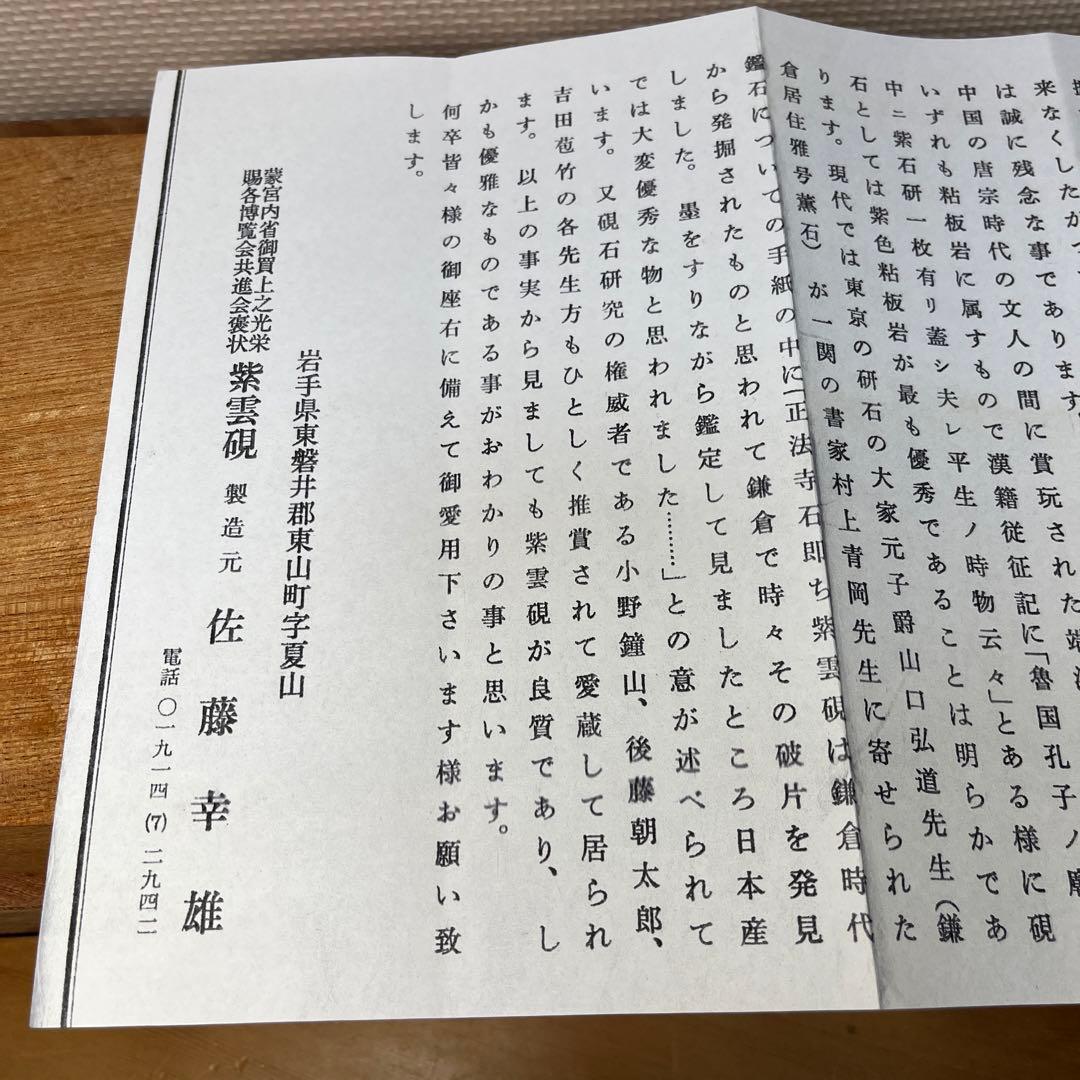 来なくしたが
は誠に残念な事であります
中国の唐宗時代の文人の間に賞玩された端
いずれも粘板岩に属すもので漢籍従征記に「魯国孔子ノ
中ニ紫石研一枚有リ蓋シ夫レ平生ノ時物云々」とある様に硯
石としては紫色粘板岩が最も優秀であることは明らかであ
ります。現代では東京の研石の大家元子爵山口弘道先生(鎌
倉居住雅号薫石)が一関の書家村上青岡先生に寄せられた
鑑石についての手紙の中に「正法寺石即ち紫雲硯は鎌倉時代
から発掘されたものと思われて鎌倉で時々その破片を発見
しました。墨をすりながら鑑定して見ましたところ日本産
では大変優秀な物と思われました………」との意が述べられて
います。又硯石研究の権威者である小野鐘山、後藤朝太郎、
吉田苞竹の各先生方もひとしく推賞されて愛蔵して居られ
ます。以上の事実から見ましても紫雲硯が良質であり、し
かも優雅なものである事がおわかりの事と思います。
何卒皆々様の御座右に備えて御愛用下さいます様お願い致
します。
岩手県東磐井郡東山町字夏山
蒙宮内省御買上之光栄
賜各博覧会共進会褒状
紫雲硯 製造元 佐藤幸雄
電話〇一九一四(7)二九四二